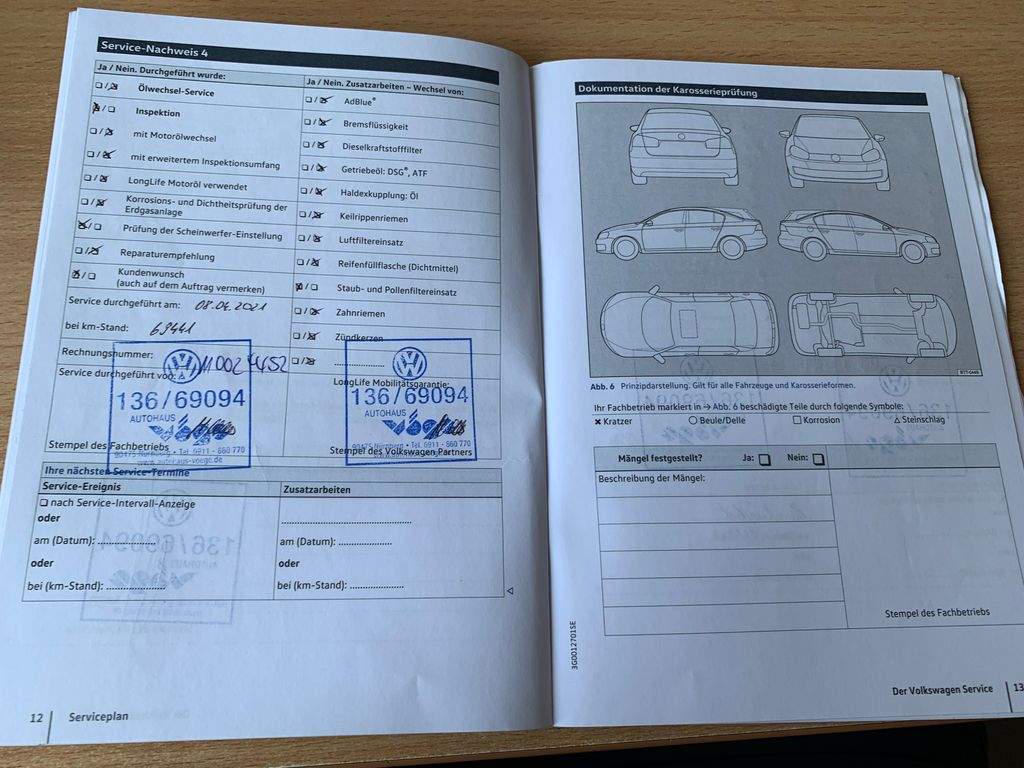 Service-Nachweis 4
Ja / Nein. Durchgeführt wurde:
Ölwechsel-Service
Inspektion
mit Motorölwechsel
mit erweitertem Inspektionsumfang
LongLife Motoröl verwendet
Korrosions- und Dichtheitsprüfung der
Erdgasanlage
Prüfung der Scheinwerfer-Einstellung
Reparaturempfehlung
Kundenwunsch
(auch auf dem Auftrag vermerken)
Service durchgeführt am: 08.04.2021
bei km-Stand: 69441
Rechnungsnummer:
Service durchgeführt von:
136/69094
AUTOHAUS
90475 Nürnberg • Tel. 0911 - 860 770
Stempel des Fachbetriebs
Ja / Nein. Zusatzarbeiten – Wechsel von:
AdBlue®
Bremsflüssigkeit
Dieselkraftstofffilter
Getriebeöl: DSG®, ATF
Haldexkupplung: Öl
Keilrippenriemen
Luftfiltereinsatz
Reifenfüllflasche (Dichtmittel)
Staub- und Pollenfiltereinsatz
Zahnriemen
Zündkerzen
LongLife Mobilitätsgarantie:
136/69094
AUTOHAUS
90475 Nürnberg • Tel. 0911 - 860 770
Stempel des Volkswagen Partners
Ihre nächsten Service-Termine
Service-Ereignis
Zusatzarbeiten
nach Service-Intervall-Anzeige
oder
am (Datum):
oder
bei (km-Stand):
am (Datum):
oder
bei (km-Stand):
12 Serviceplan
Dokumentation der Karosserieprüfung
Abb. 6 Prinzipdarstellung. Gilt für alle Fahrzeuge und Karosserieformen.
Ihr Fachbetrieb markiert in → Abb. 6 beschädigte Teile durch folgende Symbole:
Kratzer Beule/Delle Korrosion Steinschlag
Mängel festgestellt? Ja: Nein:
Beschreibung der Mängel:
Stempel des Fachbetriebs
3G0012701SE
Der Volkswagen Service 13